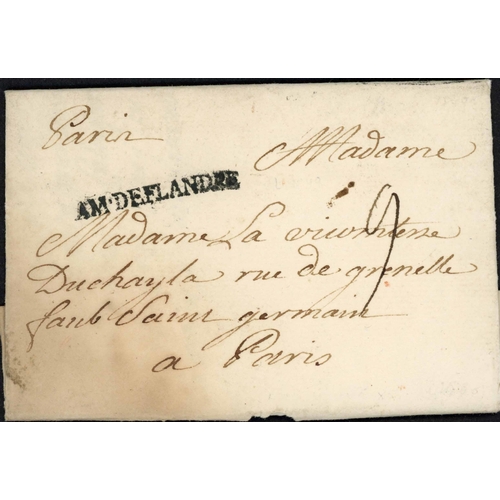 Paris
Madame
AM·DEFLANDRE
Madame La vicomtesse
Duchayla rue de grenelle
faub Saint germain
a Paris
9